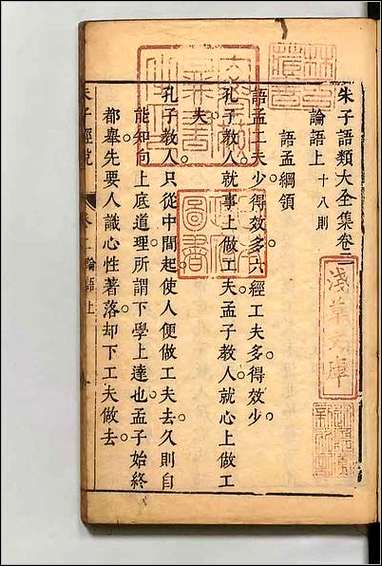 朱子語類大全集卷二
論語上 十八則
語孟綱領
語孟二夫少得效多六經工夫多得效少
孔子教人就事上做工夫孟子教人就心上做工
夫
孔子教人只從中間起使人便做工夫去久則自
能知向上底道理所謂下學上達也孟子始終
都舉先要人識心性著落却下工夫做去
朱子經說 卷二 論語上
淺草文庫
圖書